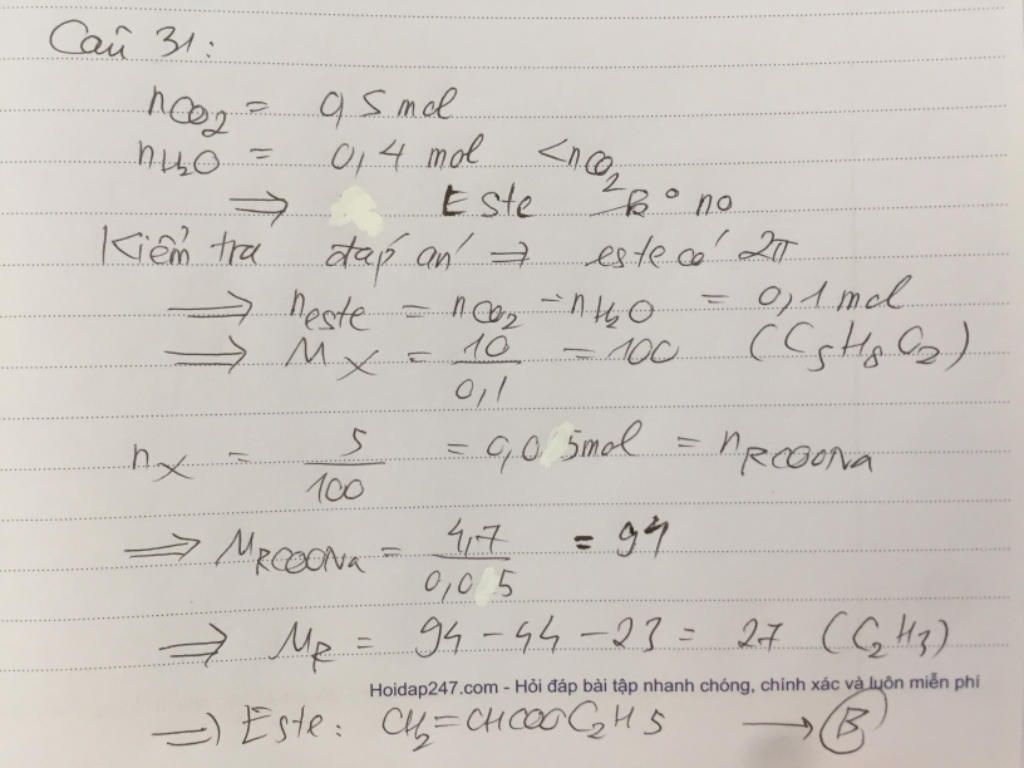 Câu 31:
nCO2 = 0,5 mol
nH2O = 0,4 mol < nCO2
⇒ Este ko no
Kiểm tra đáp án ⇒ este có 2π
⇒ neste = nCO2 - nH2O = 0,1 mol
⇒ MX = 10/0,1 = 100 (C5H8O2)
nX = 5/100 = 0,05 mol = nRCOONa
⇒ MRCOONa = 4,7/0,05 = 94
⇒ MR = 94 - 44 - 23 = 27 (C2H3)
Hoidap247.com - Hỏi đáp bài tập nhanh chóng, chính xác và luôn miễn phí
⇒ Este: CH2=CHCOOC2H5 → B